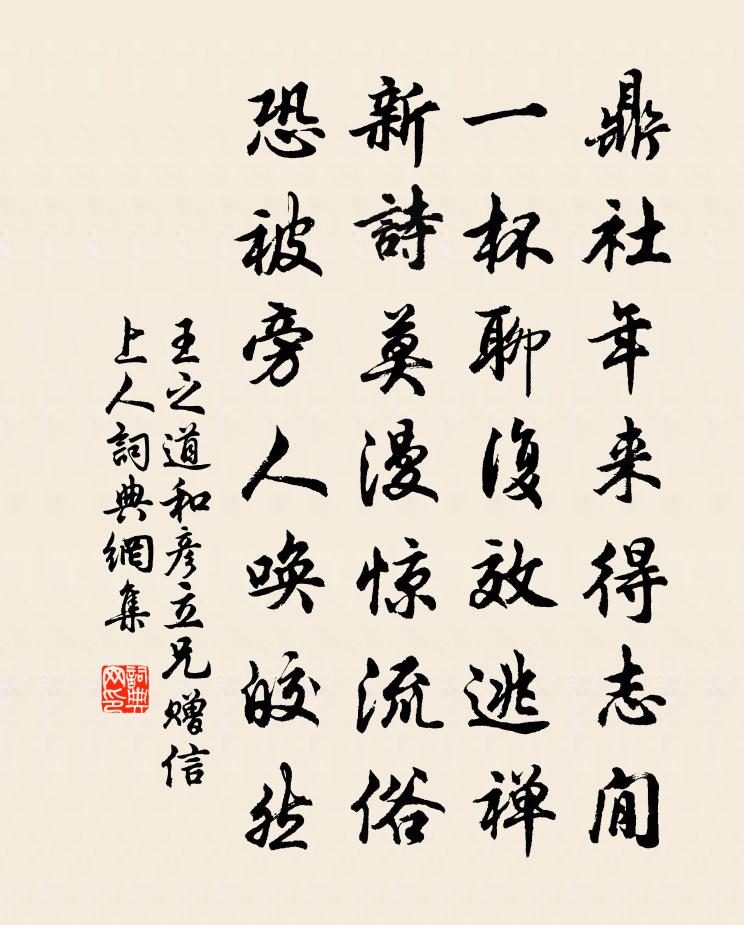 鼎社年来得志閒
一杯聊復效逃禅
新詩莫漫惊流俗
恐被旁人唤皎然
王之道和彦立兄赠信
上人詞典網集
詞典网印